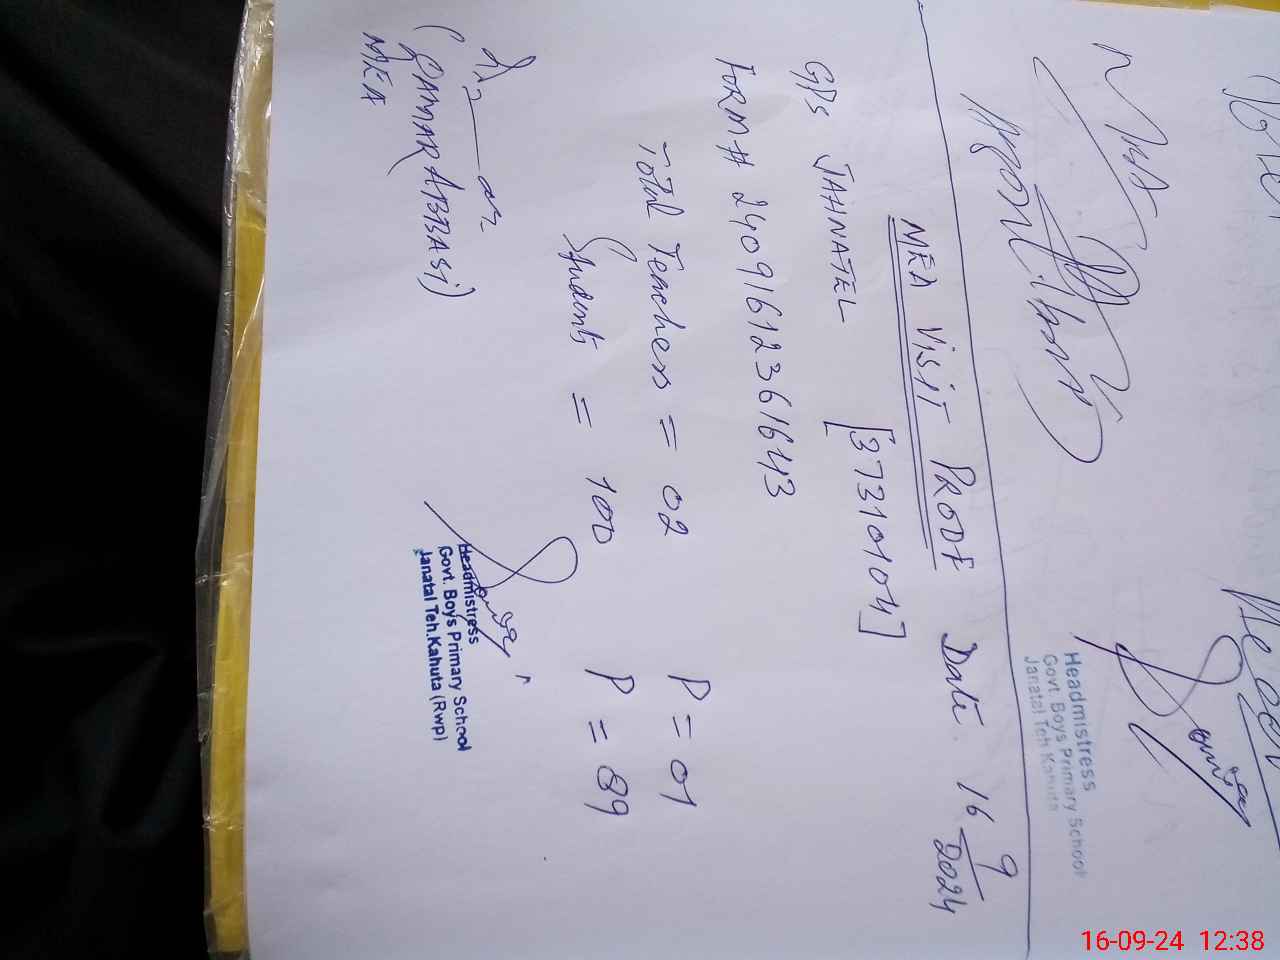 Headmistress
Govt. Boys Primary School
Janatal Teh Kahuta
MEA VISIT PROOF Date. 16/9/2024
GPS JAHNATEL [37310104]
FORM # 2409161236 1643
Total Teachers = 02 P = 01
Students = 100 P = 89
(QAMAR ABBASI)
MEA
Headmistress
Govt. Boys Primary School
Janatal Teh.Kahuta (Rwp)
16-09-24 12:38